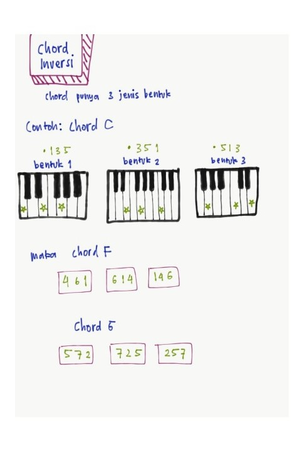 Chord
Inversi
chord punya 3 jenis bentuk
Contoh: Chord C
• 135 • 351 • 513
bentuk 1 bentuk 2 bentuk 3
maka chord F
461 614 146
Chord G
572 725 257